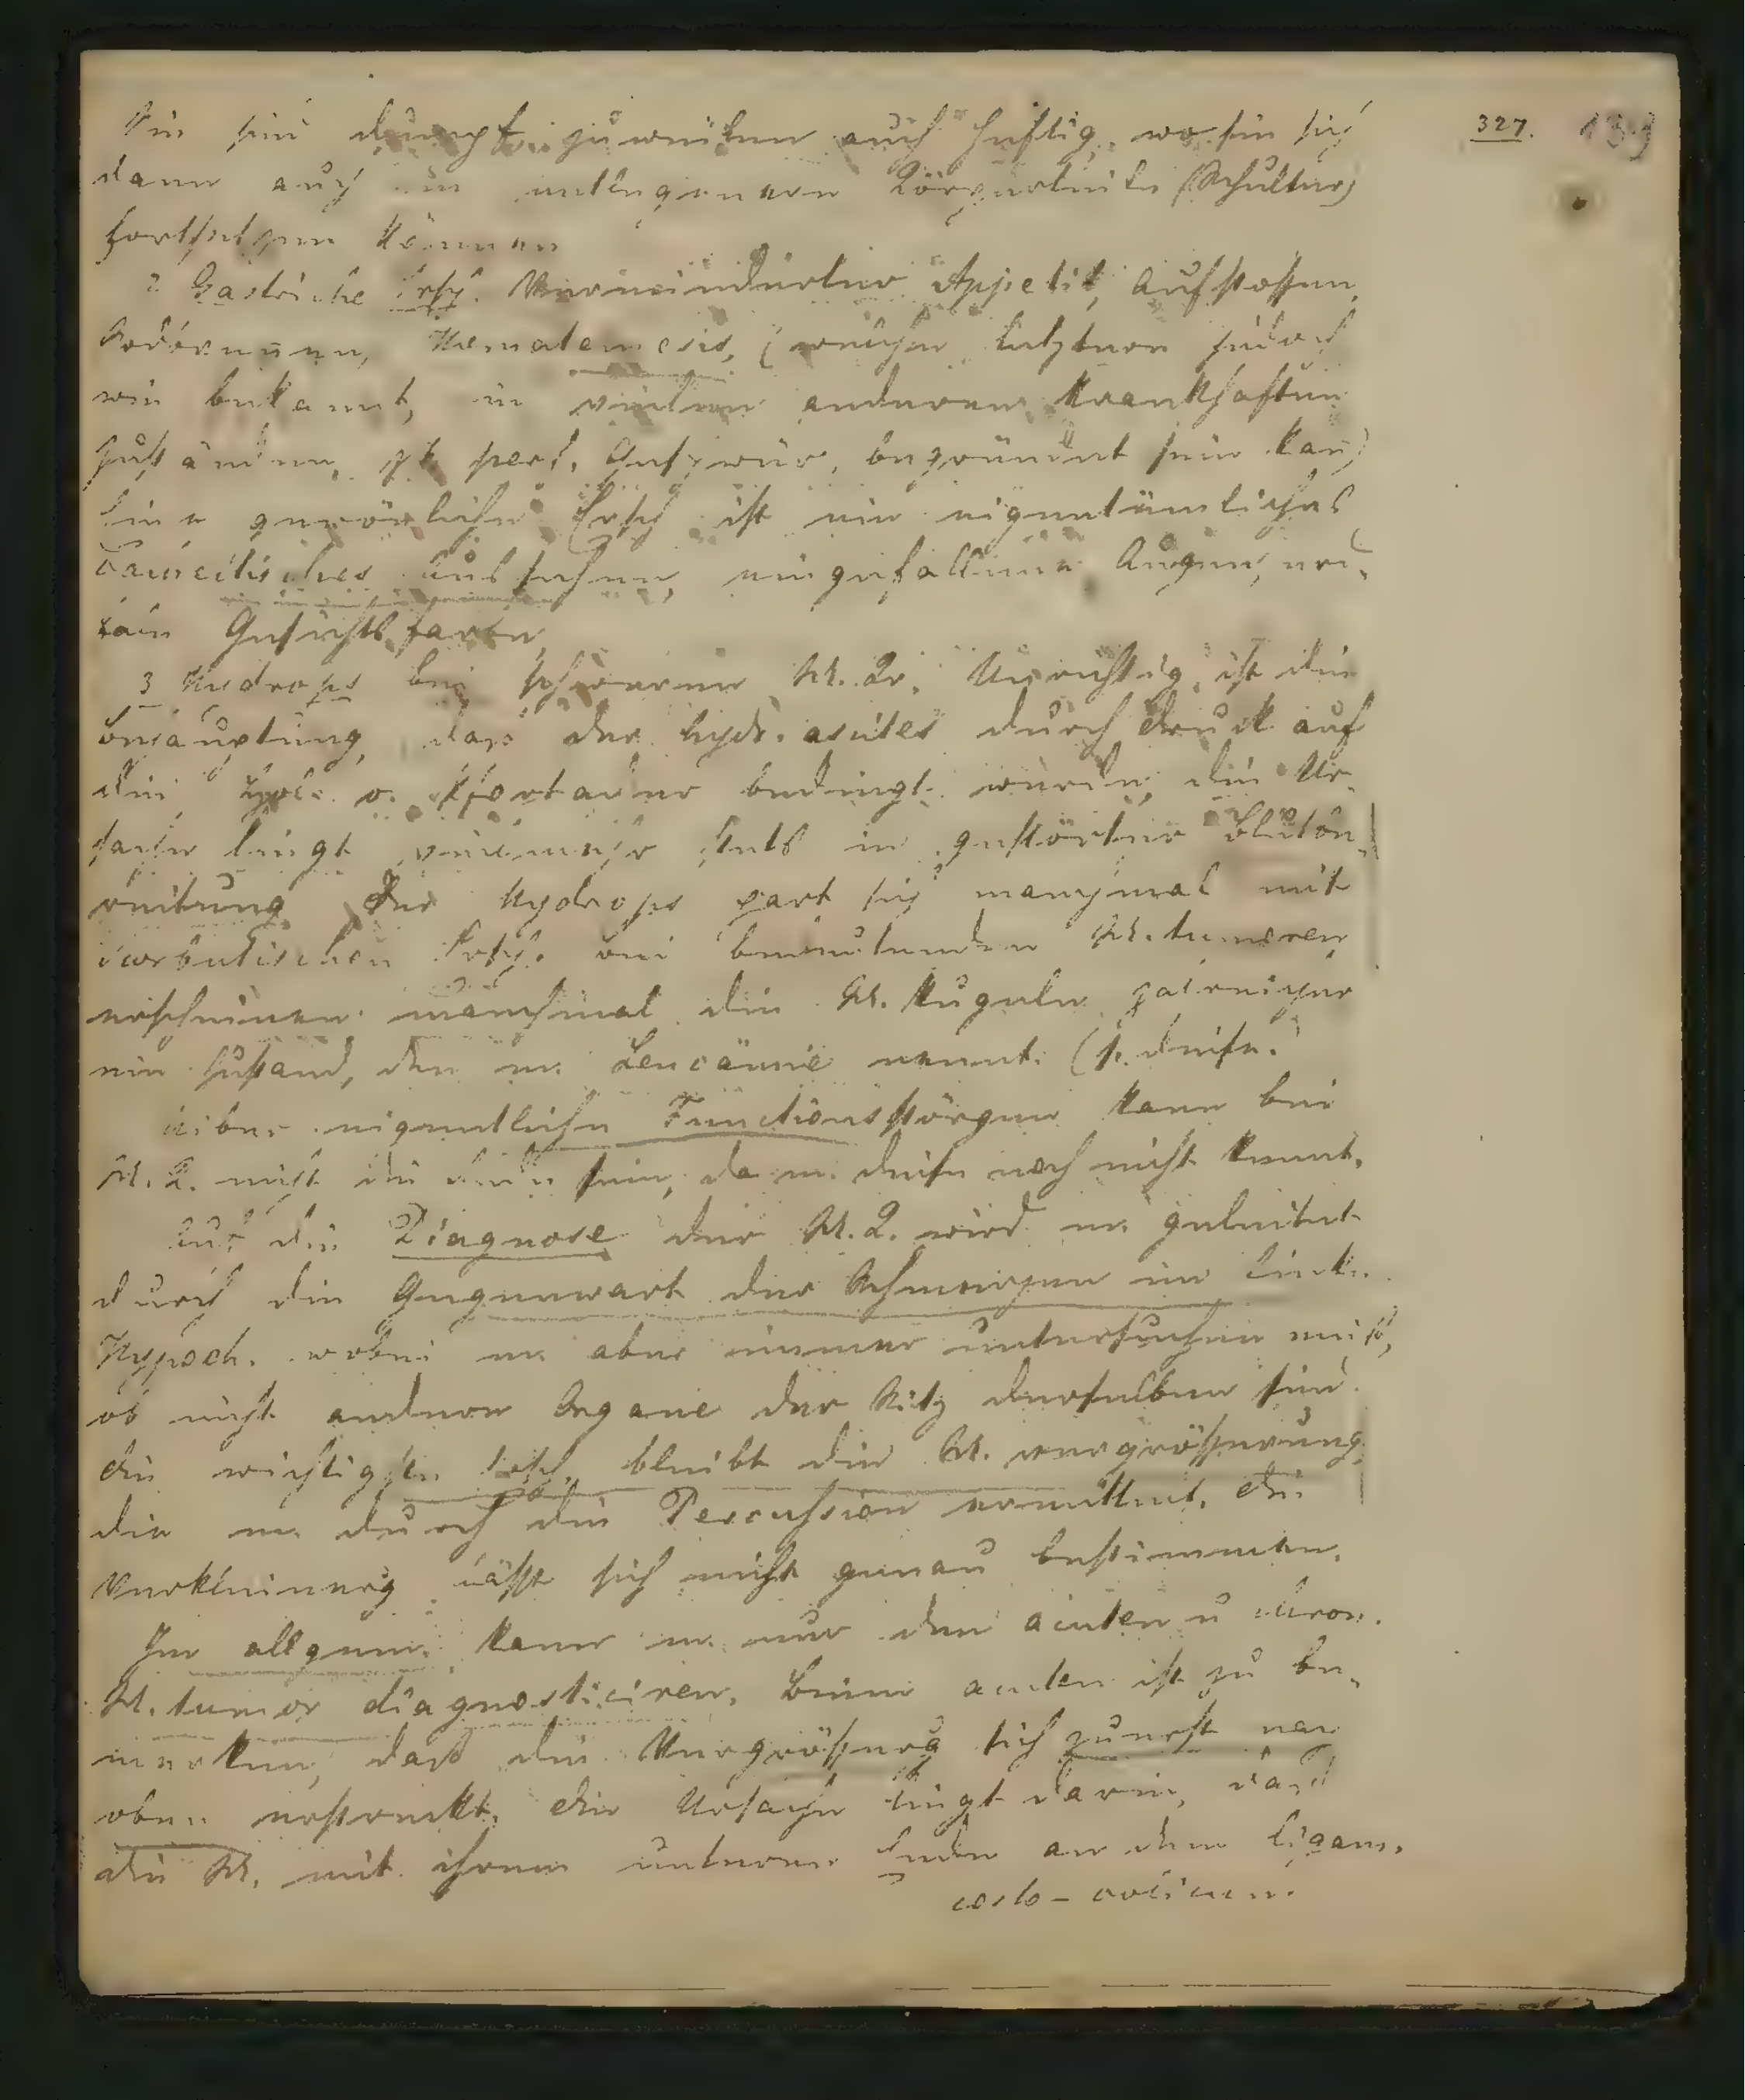 327. 139
Sie sind dumpf, zuweilen auch heftig, wo sie sich
dann auch in entlegenere Körperteile (Schulter)
fortsetzen können
2 Gastrische Ersch. Verminderter Appetit, Aufstossen,
Erbrechen, Hematemesis, (welche letztere jedoch
wie bekannt, in vielen anderen krankhaften
Zuständen, perf. Geschwür, begründet sein kan)
Eine gewönliche Ersch ist ein eigentümliches
Aussehen, eingefallene Augen,
Gesichtsfarbe,
3 Hydrops bei schwereren M. Kr. Unrichtig ist die
Behauptung, dass der hydr. ascites durch Druck auf
die v. Pfortader bedingt werde, die Ur-
sache liegt vielmehr stets in gestörter Blutbe-
reitung. Der Hydrops part sich manchmal mit
scorbutischen Ersch. bei bedeutenden M. tumoren
erscheinen manchmal die M. Kugeln zalreicher
ein Zustand, den m. Leucämie nennt. (s. diese.
Ueber eigentliche Functionsstörgen kann bei
M. K. nicht die Rede sein, da m. diese noch nicht kennt.
Auf die Diagnose der M. K. wird m. geleitet
durch die Gegenwart der Schmerzen im linken
Hypoch. wobei m. aber immer untersuchen muß,
ob nicht andere Organe der Sitz derselben sind.
die wichtigste Ersch. bleibt die M. vergrösserung,
die m. durch die Percussion ermittelt. die
Verkleinerg lässt sich nicht genau bestimmen.
Im allgem. kann m. nur den acuten u chron.
M. tumor diagnosticiren. Beim acuten ist zu be-
merken, daß die Vergrösserg sich zuerst nach
oben erstreckt. die Ursache liegt darin, daß
die M. mit ihrem unteren Ende an dem Ligam.
costo-colicum.